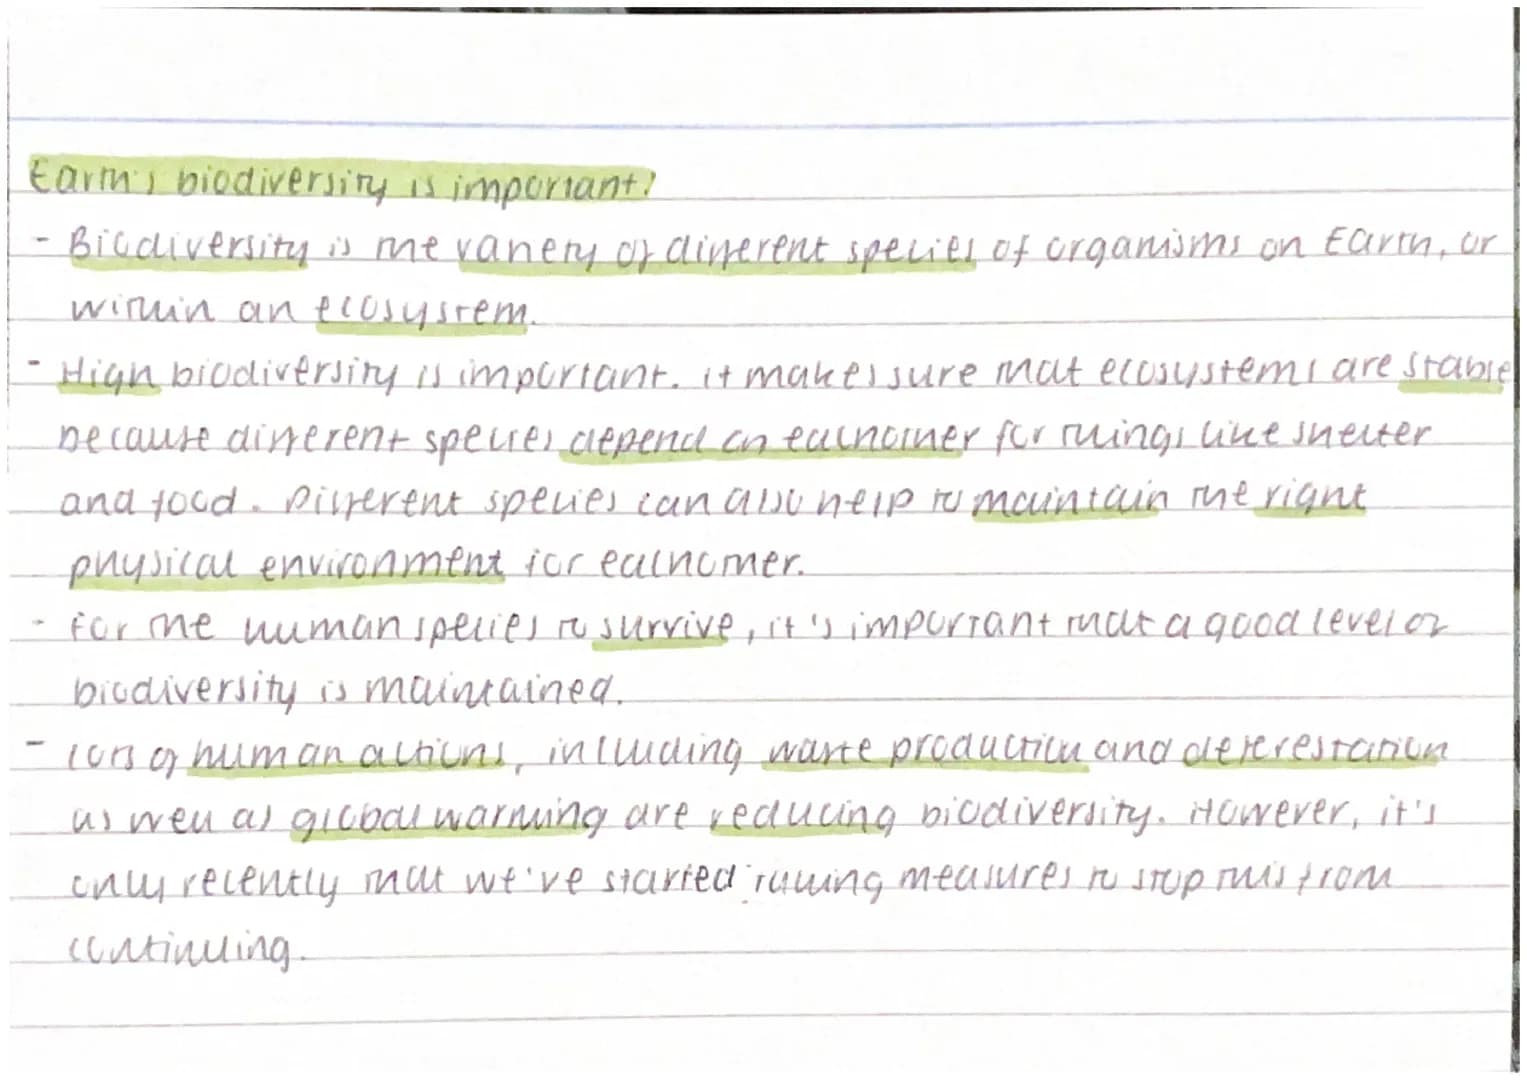 Earth's biodiversity is important!
- Biodiversity is the variety of different species of organisms on Earth, or
within an ecosystem.
- High biodiversity is important. it makes sure that ecosystems are stable
because different species depend on eachother for things like shelter
and food. Different species can also help to maintain the right
physical environment for eachother.
- For the human species to survive, it's important that a good level of
biodiversity is maintained.
- Lots of human actions, including waste production and deforestation
as well as global warming are reducing biodiversity. However, it's
only recently that we've started taking measures to stop this from
continuing.